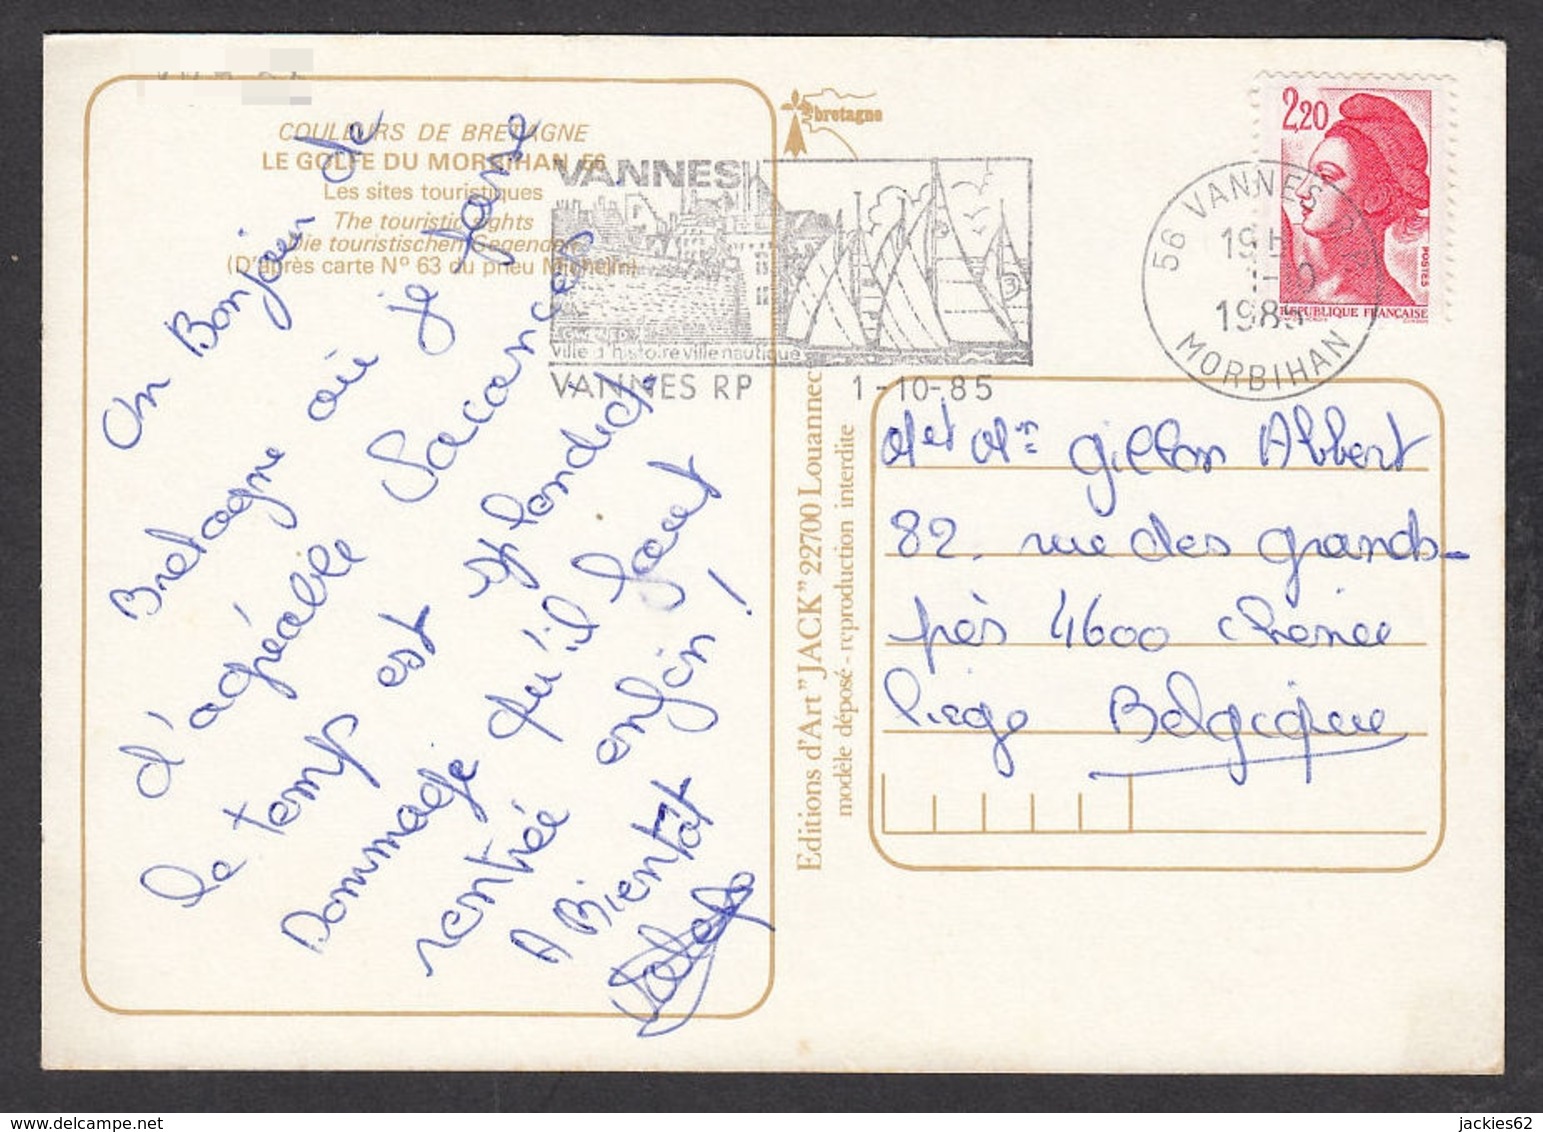 COULEURS DE BRETAGNE
LE GOLFE DU MORBIHAN 56
Les sites touristiques
The touristic sights
Die touristischen Gegenden
(D'après carte Nº 63 du pneu Michelin)
Un Bonjour de
Bretagne où je passe
d'agréable Vacances
le temps est splendide.
Dommage qu'il faut
rentrée enfin !
A Bientôt
bretagne
VANNES
Ville d'histoire ville nautique
VANNES RP 1-10-85
Editions d'Art "JACK" 22700 Louannec
modèle déposé - reproduction interdite
2,20
POSTES
REPUBLIQUE FRANÇAISE
56 VANNES R.P.
19H
1-10
1985
MORBIHAN
M et Mm Gillon Albert
82, rue des grands-
près 4600 Chênée
Liège Belgique
jackies62